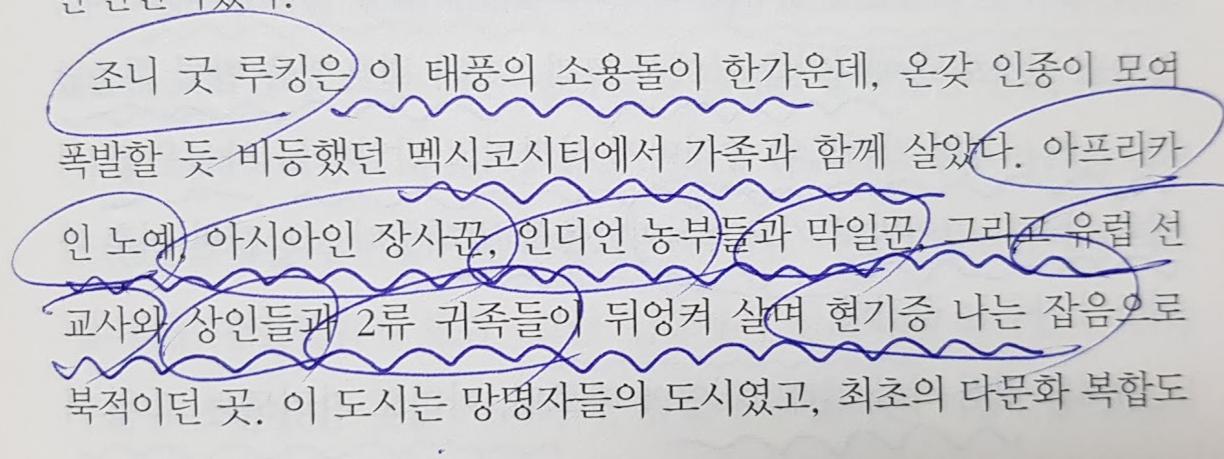 조니 굿 루킹은 이 태풍의 소용돌이 한가운데, 온갖 인종이 모여
폭발할 듯 비등했던 멕시코시티에서 가족과 함께 살았다. 아프리카
인 노예, 아시아인 장사꾼, 인디언 농부들과 막일꾼, 그리고 유럽 선
교사와 상인들과 2류 귀족들이 뒤엉켜 살며 현기증 나는 잡음으로
북적이던 곳. 이 도시는 망명자들의 도시였고, 최초의 다문화 복합도